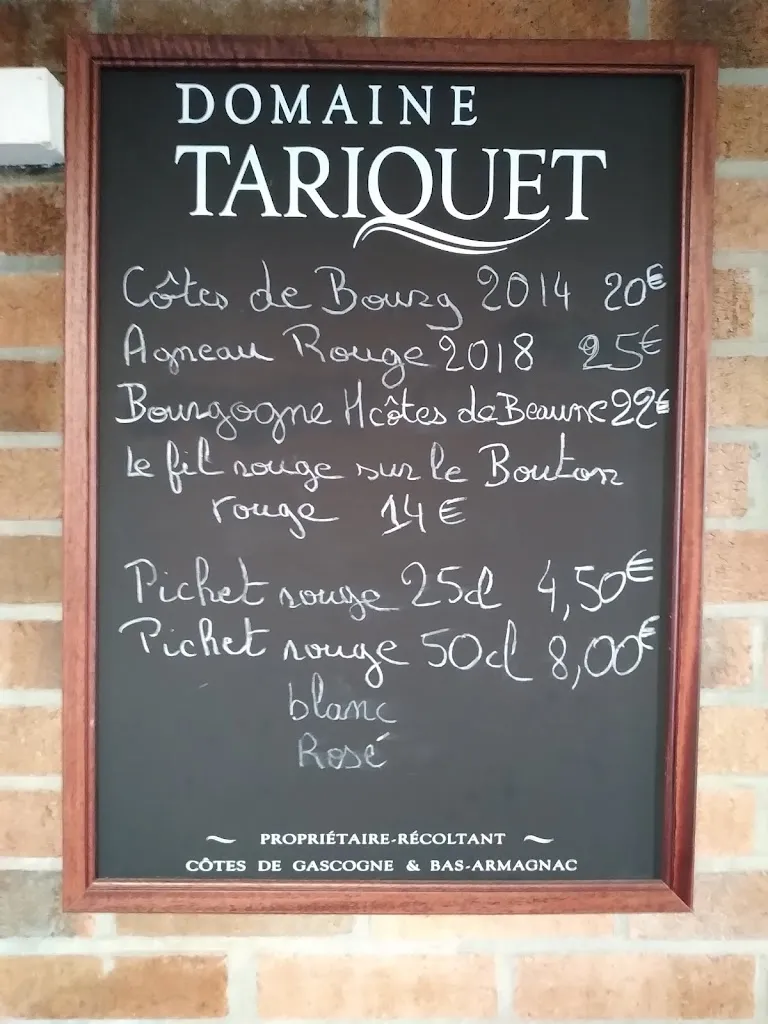 DOMAINE
TARIQUET
Côtes de Bourg 2014 20€
Agneau Rouge 2018 25€
Bourgogne Hcôtes de Beaune 22€
le fil rouge sur le Bouton
rouge 14€
Pichet rouge 25cl 4,50€
Pichet rouge 50cl 8,00€
blanc
Rosé
~ PROPRIÉTAIRE-RÉCOLTANT ~
CÔTES DE GASCOGNE & BAS-ARMAGNAC